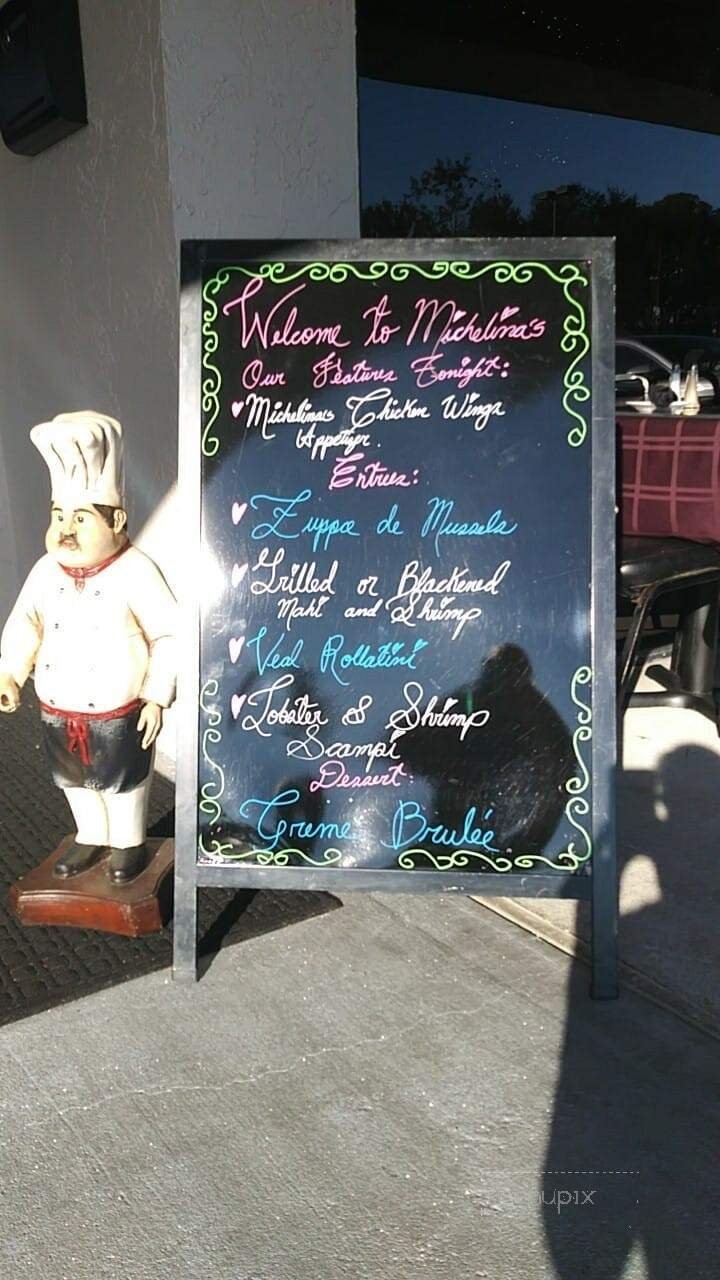 Welcome to Michelina's
Our Features Tonight:
Michelina's Chicken Wings
Appetizer.
Entrees:
Zuppa de Mussels
Grilled or Blackened
Mahi and Shrimp
Veal Rollatini
Lobster & Shrimp
Scampi
Dessert:
Creme Brulée